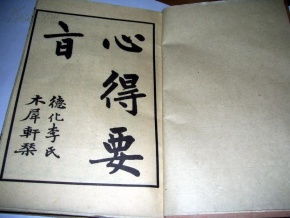 心得要
旨
德化李氏
木犀軒栞